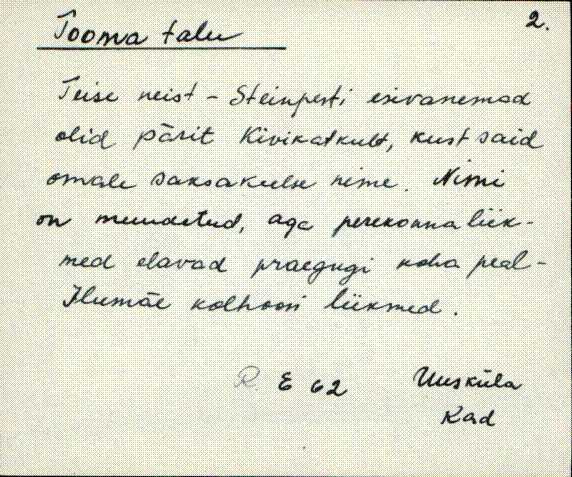 2.
Tooma talu
Teise neist - Steinpesti esivanemad
olid pärit Kivikatkult, kust said
omale saksakeelse nime. Nimi
on muudetud, aga perekonna liik-
med elavad praegugi koha peal -
Ilumäe kolhoosi liikmed.
R. E 62 Uusküla
Kad